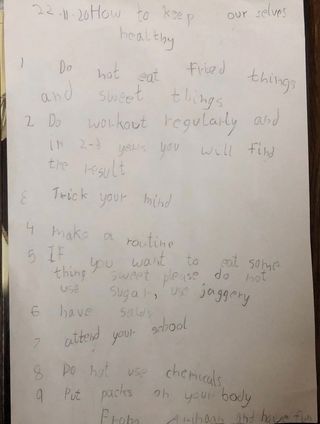 22-11-20 How to keep our selves
healthy
1 Do not eat fried things
and sweet things
2 Do workout regularly and
in 2-3 years you will find
the result
3 Trick your mind
4 make a routine
5 IF you want to eat some
thing sweet please do not
use sugar, use jaggery
6 have
7 attend your school
8 Do not use chemicals
9 Put packs on your body
From and have fun